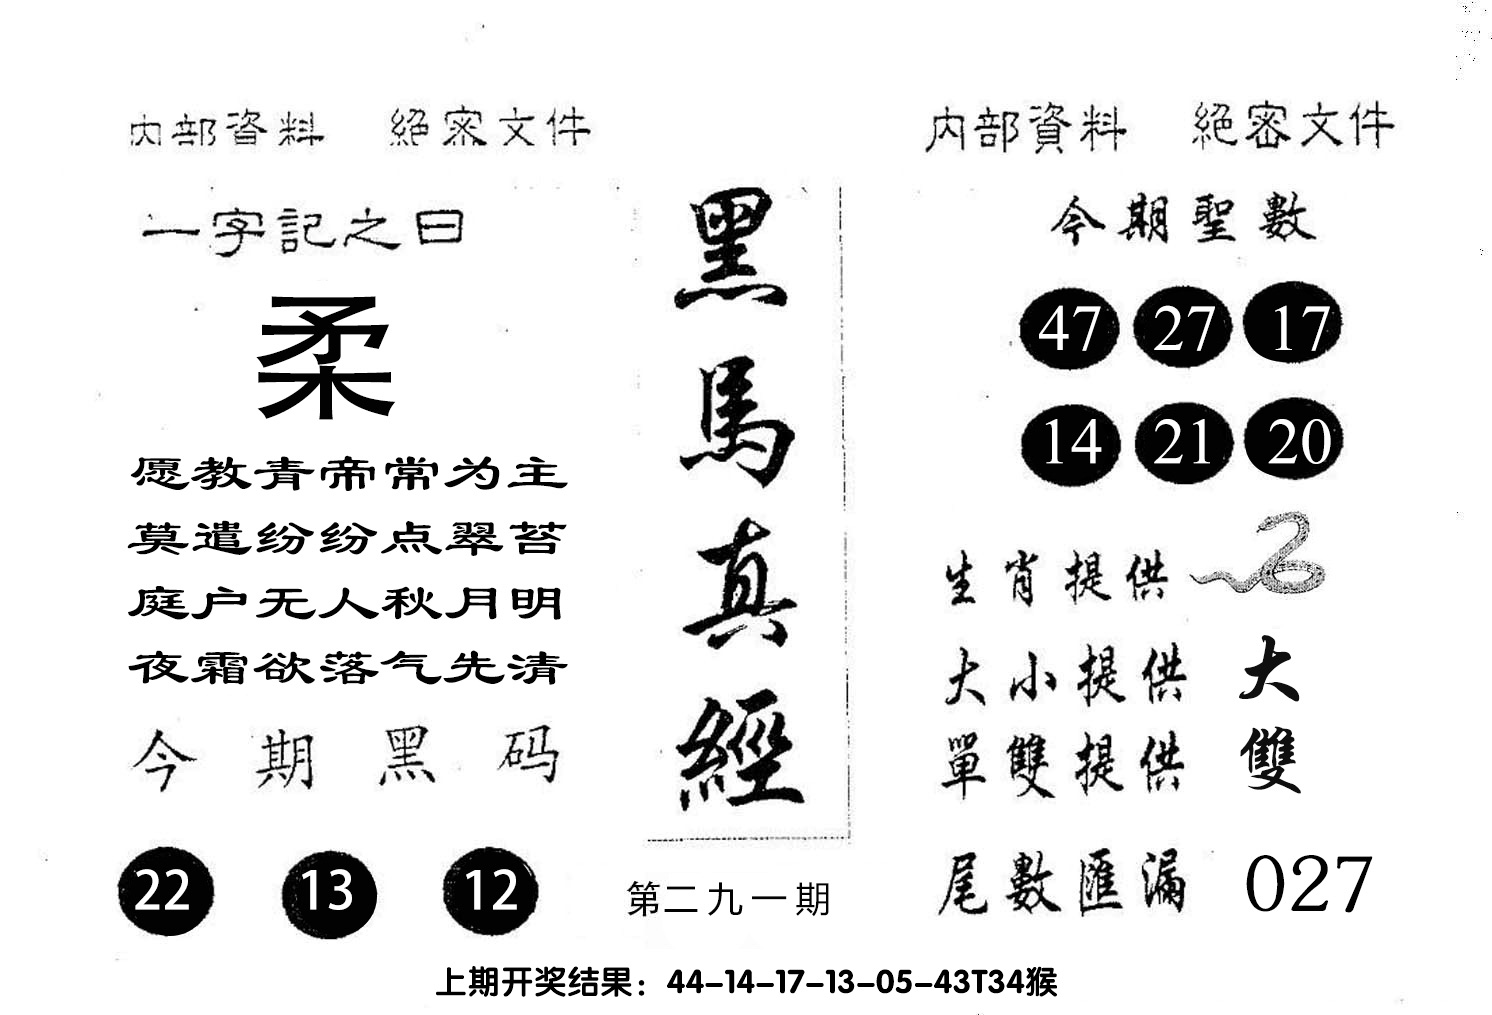 内部資料 絕密文件
一字記之曰
柔
愿教青帝常为主
莫遣纷纷点翠苔
庭户无人秋月明
夜霜欲落气先清
今期黑码
22 13 12
黑馬真經
第二九一期
内部資料 絕密文件
今期聖數
47 27 17
14 21 20
生肖提供
大小提供 大
單雙提供 雙
尾數匯漏 027
上期开奖结果：44-14-17-13-05-43T34猴